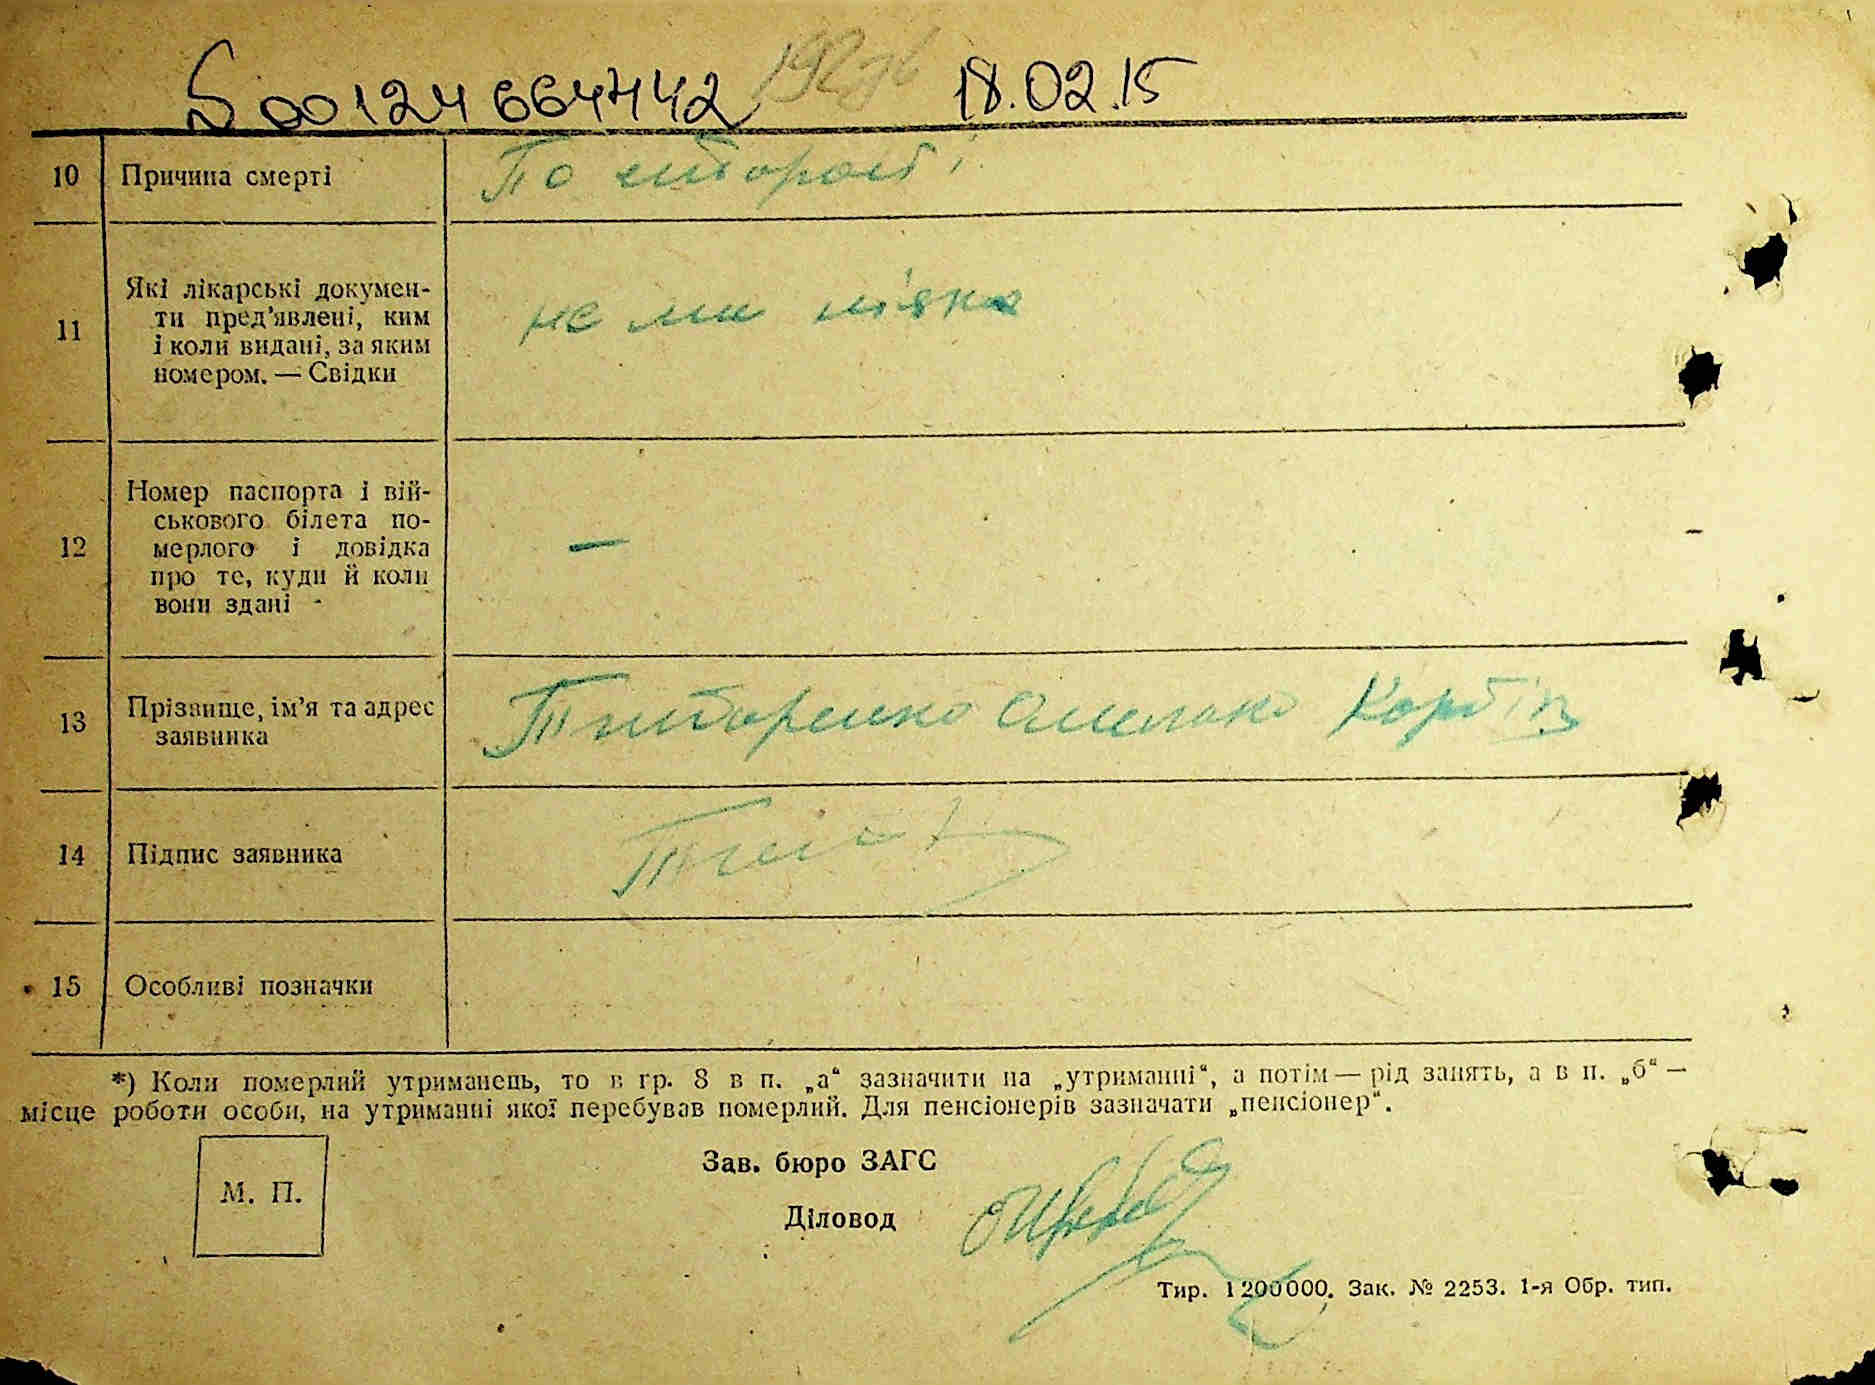 S00124664442 192зв 18.02.15
10 Причина смерті По старості
11 Які лікарські докумен-
ти пред'явлені, ким
і коли видані, за яким
номером. — Свідки
не ма ніяких
12 Номер паспорта і вій-
ськового білета по-
мерлого і довідка
про те, куди й коли
вони здані -
—
13 Прізвище, ім'я та адрес
заявника
Титаренко Омелько
14 Підпис заявника
15 Особливі позначки
*) Коли померлий утриманець, то в гр. 8 в п. „а“ зазначити на „утриманні“, а потім — рід занять, а в п. „б“ —
місце роботи особи, на утриманні якої перебував померлий. Для пенсіонерів зазначати „пенсіонер“.
М. П.
Зав. бюро ЗАГС
Діловод
Тир. 1 200 000. Зак. № 2253. 1-я Обр. тип.